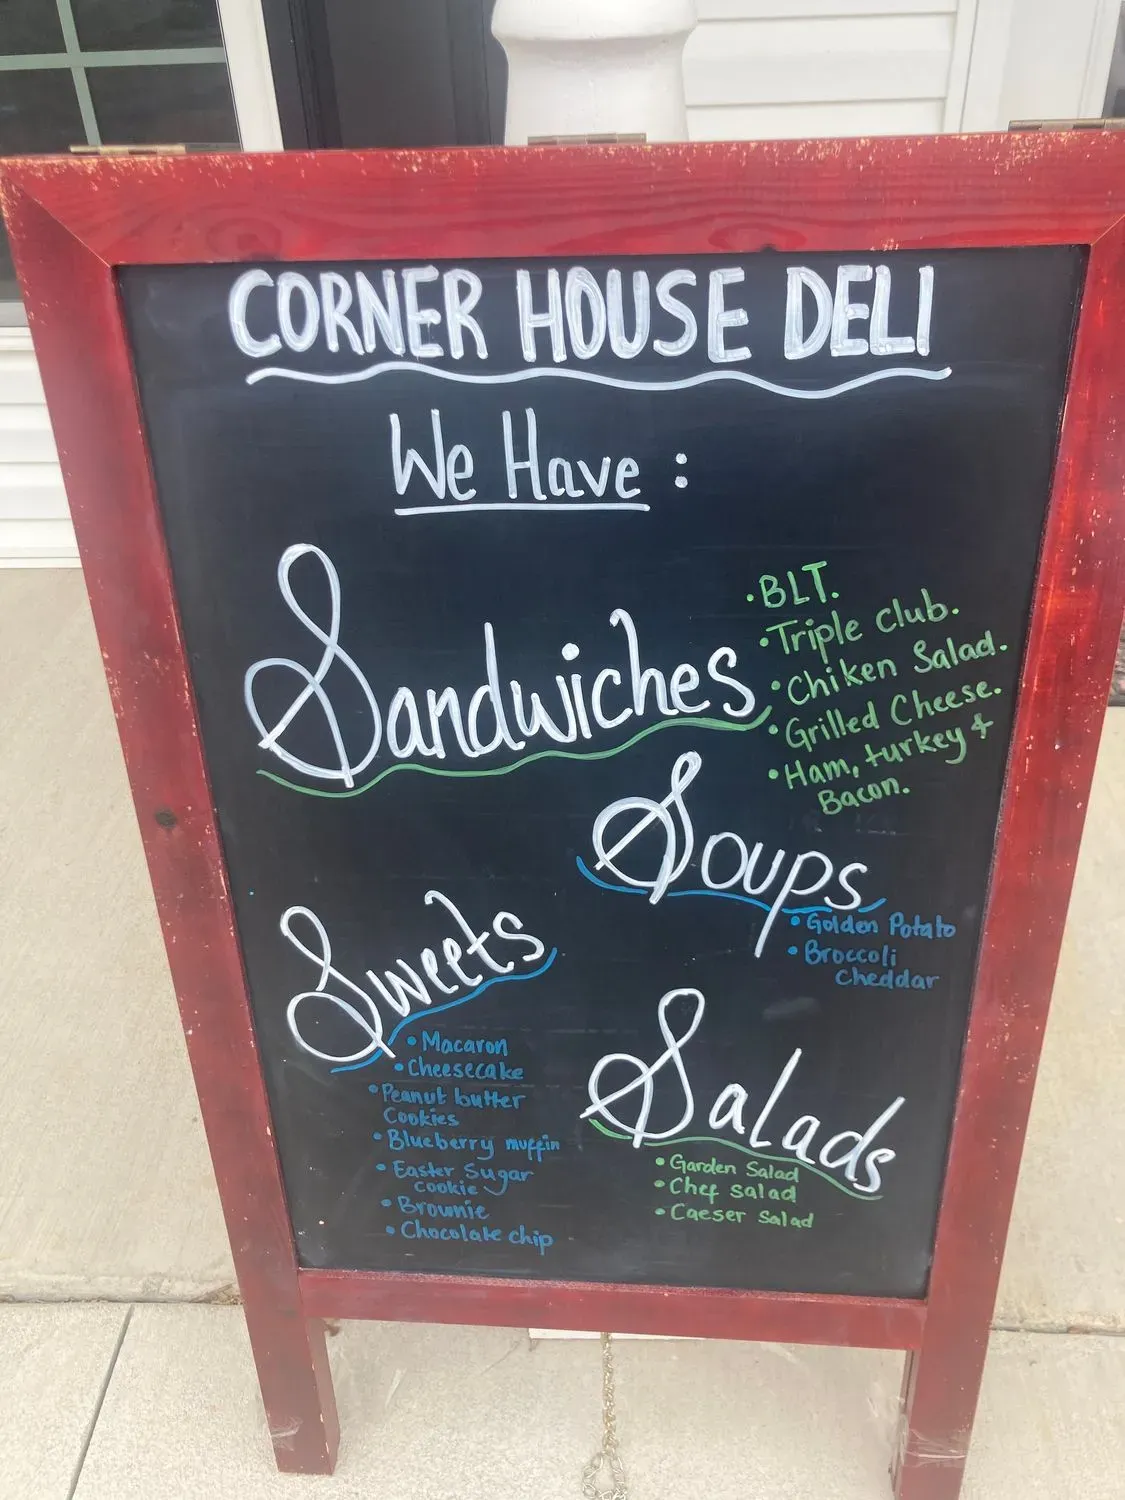 CORNER HOUSE DELI
We Have :
Sandwiches
• BLT.
• Triple club.
• Chiken Salad.
• Grilled Cheese.
• Ham, turkey &
Bacon.
Soups
• Golden Potato
• Broccoli
Cheddar
Sweets
• Macaron
• Cheesecake
• Peanut butter
Cookies
• Blueberry muffin
• Easter Sugar
cookie
• Brownie
• Chocolate chip
Salads
• Garden Salad
• Chef salad
• Caeser salad